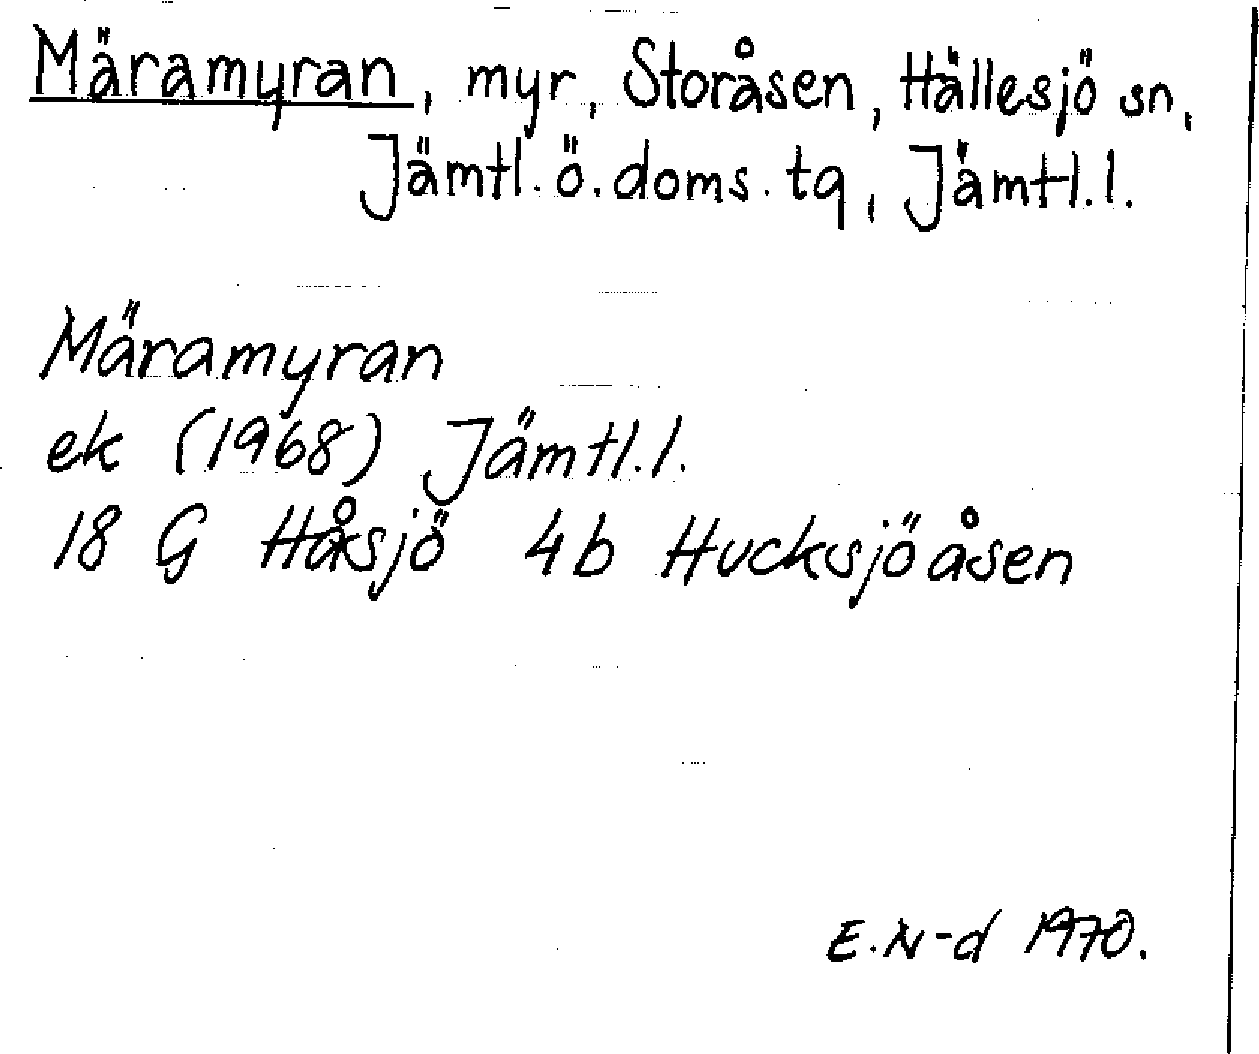 Märamyran, myr, Storåsen, Hällesjö sn,
Jämtl. ö. doms. tg, Jämtl. l.
Märamyran
ek (1968) Jämtl. l.
18 G Håsjö 4b Hucksjöåsen
E. N-d 1970.